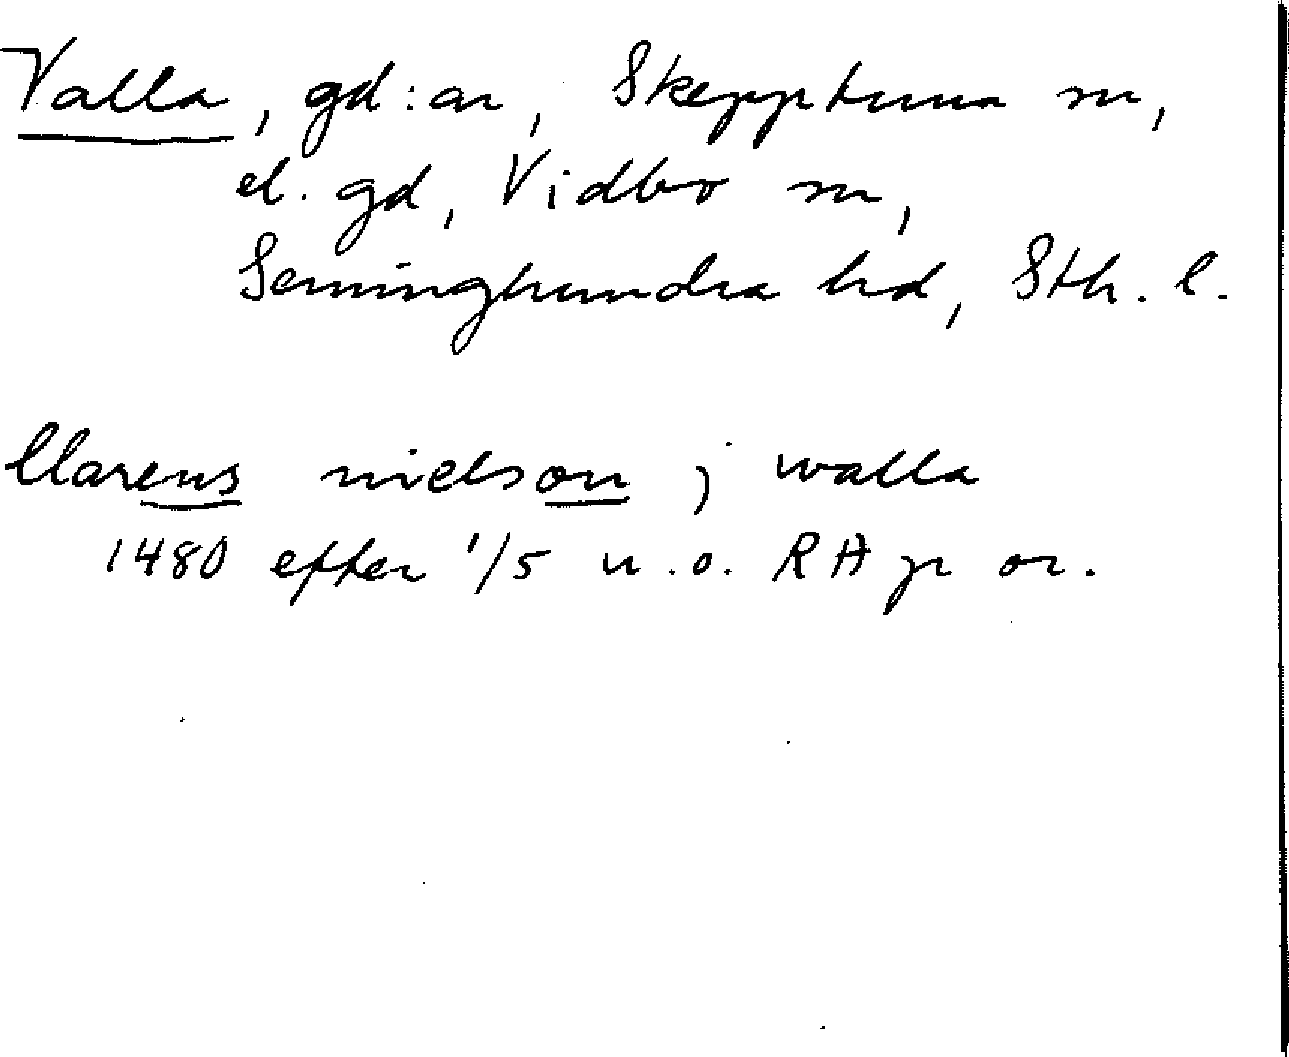 Valla, gd:ar, Skepptuna sn,
el. gd, Vidbo sn,
Seminghundra hd, Sth. l.
Clarens nielson j walla
1480 efter 1/5 u.o. RA p or.